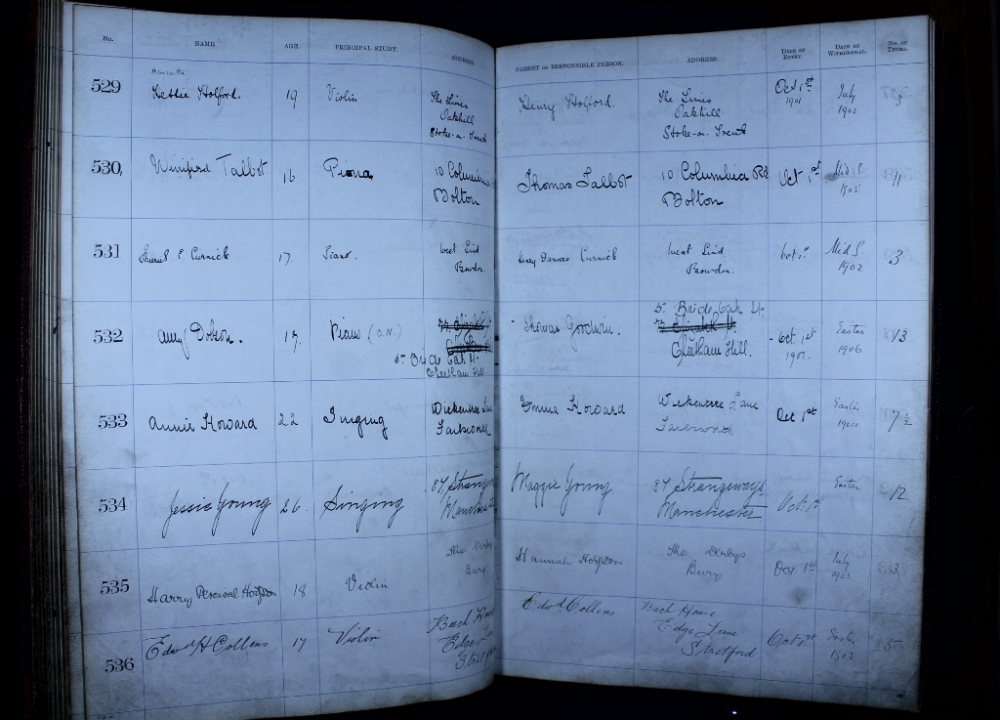 No. NAME. AGE. PRINCIPAL STUDY. ADDRESS. PARENT OR RESPONSIBLE PERSON. ADDRESS. DATE OF ENTRY. DATE OF WITHDRAWAL. No. OF TERMS.
529 Holford. 19 Violin The Limes Henry Holford The Limes Oct 1st July
Oakhill Oakhill 1901
Stoke-on-Trent Stoke-on-Trent
530 Winifred Talbot 16 Piano 10 Columbia Thomas Talbot 10 Columbia Rd Oct 1st 11
Bolton Bolton
531 Curnick 17 Piano. West Lind Curnick West Lind Oct 1st Mid S. 3
Bowdon Bowdon. 1902
5 Bride Oak St.
532 Amy Dobson. 17. Piano Thomas Goodwin. Oct 1st Easter 13
Cheetham Hill. 1901. 1906
5 Bride Oak St.
Cheetham Hill
533 Annie Howard 22 Singing Emma Howard Lane Oct 1st Easter 7½
534 Jessie Young 26. Singing 84 Strangeways Maggie Young 84 Strangeways Oct. 1st Easter 12
Manchester Manchester
535 Harry Percival Hodgson 18 Violin The Derby Hannah Hodgson The Derbys Oct. 1st July
Bury Bury
536 Edwd H Collens 17 Violin Bach House Edwd Collens Bach House Oct 1st 5
Edge Lane Edge Lane
Stretford Stretford